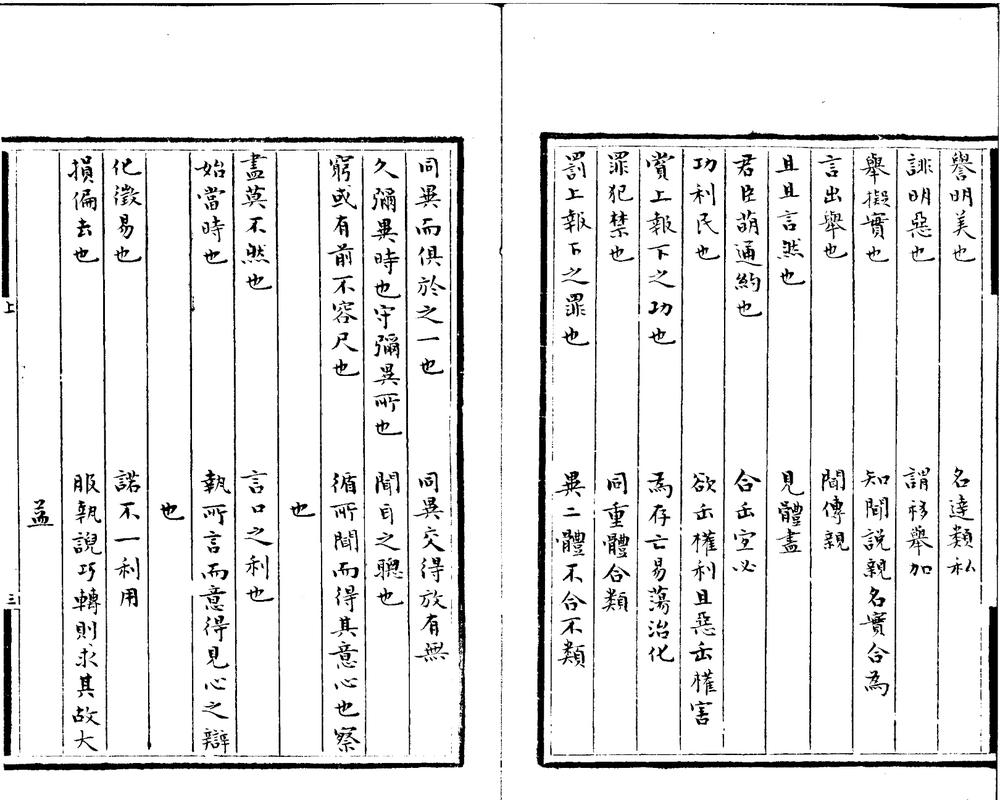 譽明美也　名達類私
誹明惡也　謂移舉加
舉擬實也　知聞說親名實合為
言出舉也　聞傳親
且且言然也　見體盡
君臣萌通約也　合缶宜必
功利民也　欲缶權利且惡缶權害
賞上報下之功也　為存亡易蕩治化
罪犯禁也　同重體合類
罰上報下之罪也　異二體不合不類
同異而俱於之一也　同異交得放有無
久彌異時也守彌異所也　聞耳之聰也
窮或有前不容尺也　循所聞而得其意心也察
也
盡莫不然也　言口之利也
始當時也　執所言而意得見心之辯
也
化徵易也　諾不一利用
損偏去也　服執說巧轉則求其故大
益
上
三